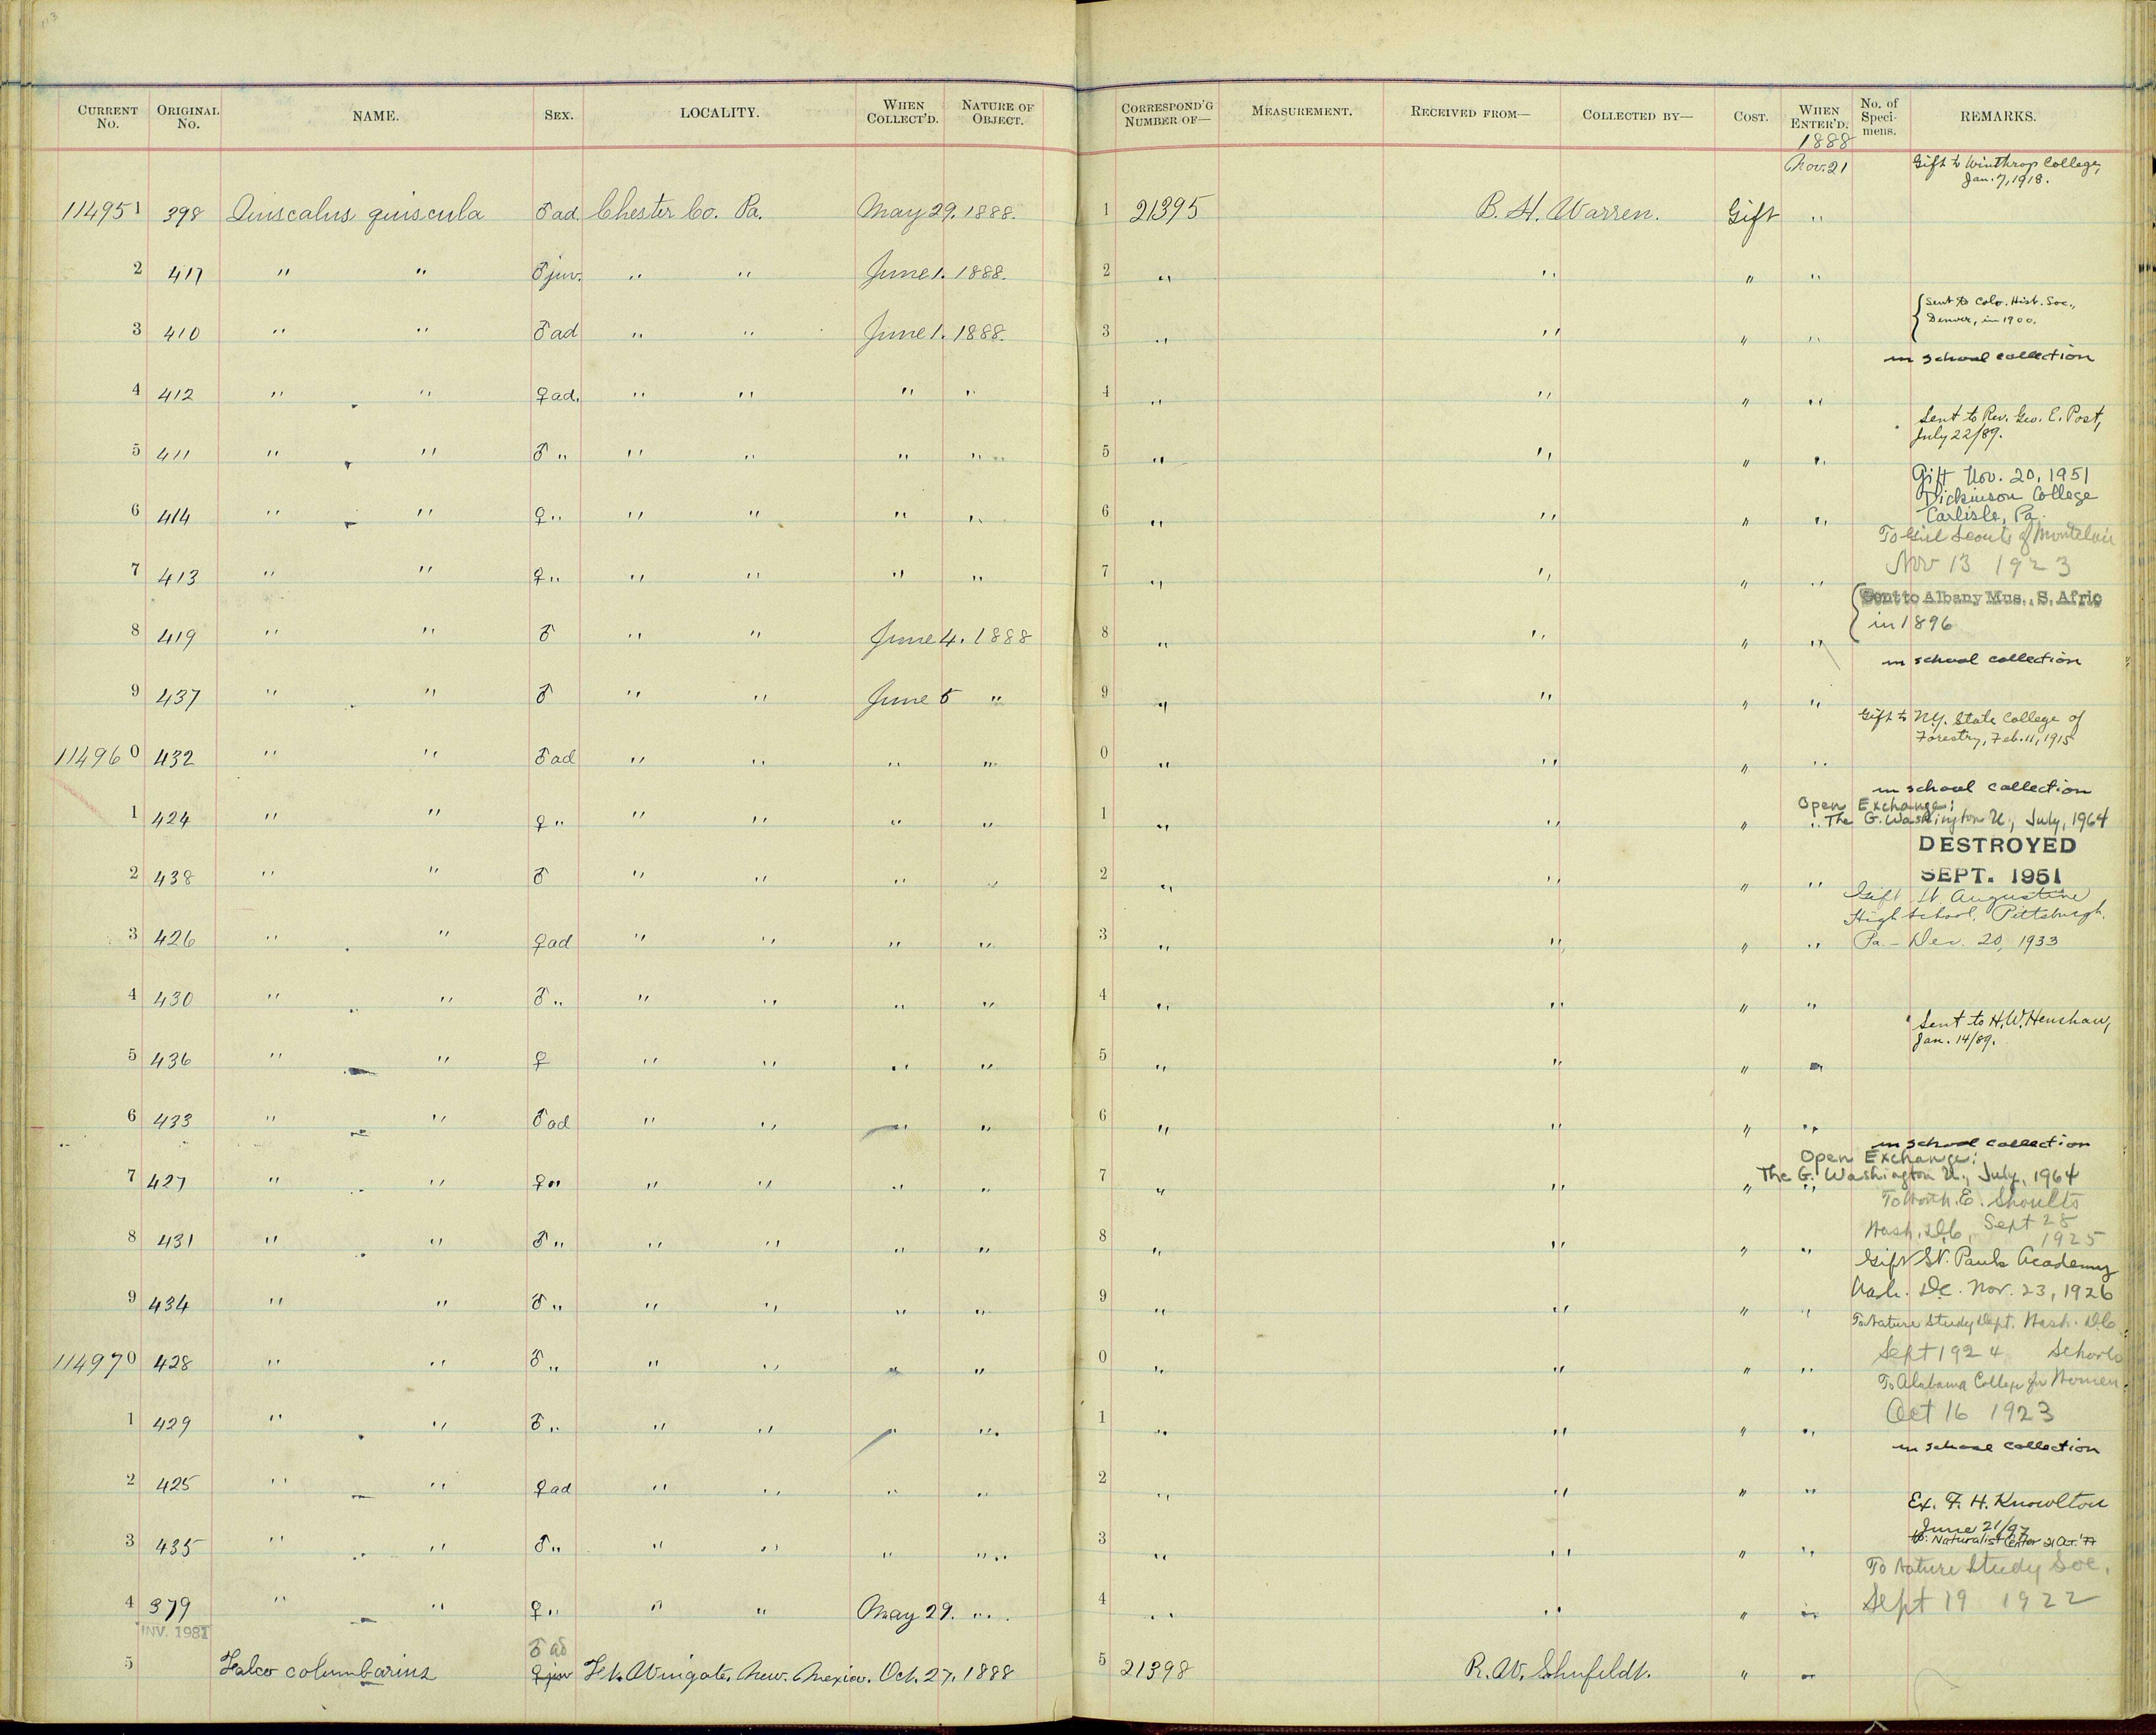 CURRENT No. ORIGINAL No. NAME. SEX. LOCALITY. WHEN COLLECT'D. NATURE OF OBJECT. CORRESPOND'G NUMBER OF— MEASUREMENT. RECEIVED FROM— COLLECTED BY— COST. WHEN ENTER'D. No. of Speci-mens. REMARKS.
1888
Nov. 21 Gift to Winthrop College,
Jan. 7, 1918.
114951 398 Quiscalus quiscula ♂ ad. Chester Co. Pa. May 29. 1888. 1 21395 B. H. Warren. Gift "
2 417 " " ♂ juv. " " June 1. 1888. 2 " " " "
Sent to Colo. Hist. Soc.,
Denver, in 1900.
3 410 " " ♂ ad " " June 1. 1888. 3 " " " "
in school collection
4 412 " " ♀ ad. " " " " 4 " " " "
Sent to Rev. Geo. E. Post,
July 22/89.
5 411 " " ♂ " " " " " 5 " " " "
Gift Nov. 20, 1951
Dickinson College
Carlisle, Pa.
6 414 " " ♀ " " " " " 6 " " " "
To Girl Scouts of Montclair
Nov 13 1923
7 413 " " ♀ " " " " " 7 " " " "
Sent to Albany Mus., S. Afric
in 1896
8 419 " " ♂ " " June 4. 1888 8 " " " "
in school collection
9 437 " " ♂ " " June 5 " 9 " " " "
Gift to N.Y. State College of
Forestry, Feb. 11, 1915
114960 432 " " ♂ ad " " " " 0 " " " "
in school collection
Open Exchange:
The G. Washington U., July, 1964
1 424 " " ♀ " " " " " 1 " " " "
DESTROYED
SEPT. 1951
2 438 " " ♂ " " " " 2 " " " "
Gift St. Augustine
High School, Pittsburgh.
3 426 " " ♀ ad " " " " 3 " " " " Pa. – Dec. 20, 1933
4 430 " " ♂ " " " " " 4 " " " "
Sent to H. W. Henshaw,
Jan. 14/89.
5 436 " " ♀ " " " " 5 " " " "
6 433 " " ♂ ad " " " " 6 " " " "
in school collection
Open Exchange:
The G. Washington U., July, 1964
7 427 " " ♀ " " " " " 7 " " " "
E. Shoults
Wash. D.C. Sept 28
1925
8 431 " " ♂ " " " " " 8 " " " "
Gift St. Pauls Academy
Wash. D.C. Nov. 23, 1926
9 434 " " ♂ " " " " " 9 " " " "
To Nature Study Dept. Wash. D.C.
Sept 1924 Schools
114970 428 " " ♂ " " " " " 0 " " " "
To Alabama College for Women
Oct 16 1923
1 429 " " ♂ " " " " " 1 " " " "
in school collection
2 425 " " ♀ ad " " " " 2 " " " "
Ex. F. H. Knowlton
June 21/97
Naturalist Center 21 Oct. '77
3 435 " " ♂ " " " " " 3 " " " "
To Nature Study Soc.
Sept 19 1922
4 379 " " ♀ " " " May 29. " 4 " " " "
INV. 1981
♂ ad
5 Falco columbarius ♀ juv Ft. Wingate, New. Mexico. Oct. 27, 1888 5 21398 R. W. Shufeldt. " "